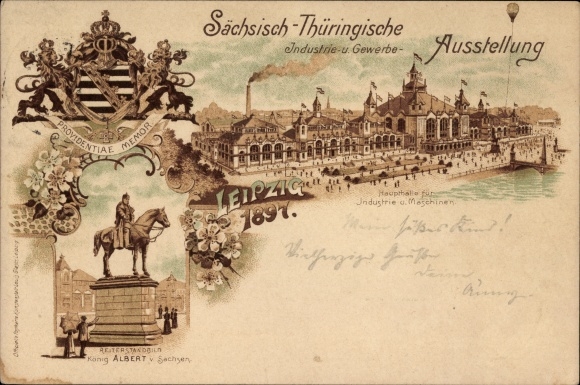 Sächsisch-Thüringische
Industrie- u. Gewerbe-
Ausstellung
PROVIDENTIAE MEMOR
LEIPZIG
1897.
Haupthalle für
Industrie u. Maschinen.
Mein süßes Kind!
Grüße
Deine
REITERSTANDBILD
König ALBERT v. Sachsen.